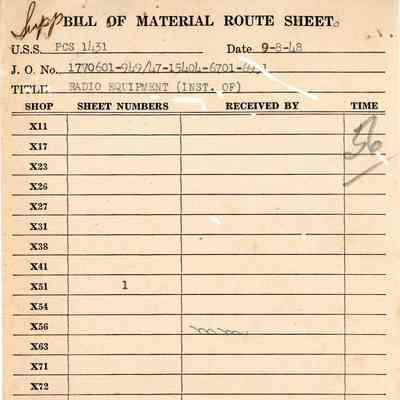 Supp BILL OF MATERIAL ROUTE SHEET.
U.S.S. PCS 1431 Date 9-8-48
J. O. No. 1770601-949/47-15404-6701-
TITLE RADIO EQUIPMENT (INST. OF)
SHOP SHEET NUMBERS RECEIVED BY TIME
X11
X17
X23
X26
X27
X31
X38
X41
X51 1
X54
X56
X63
X71
X72